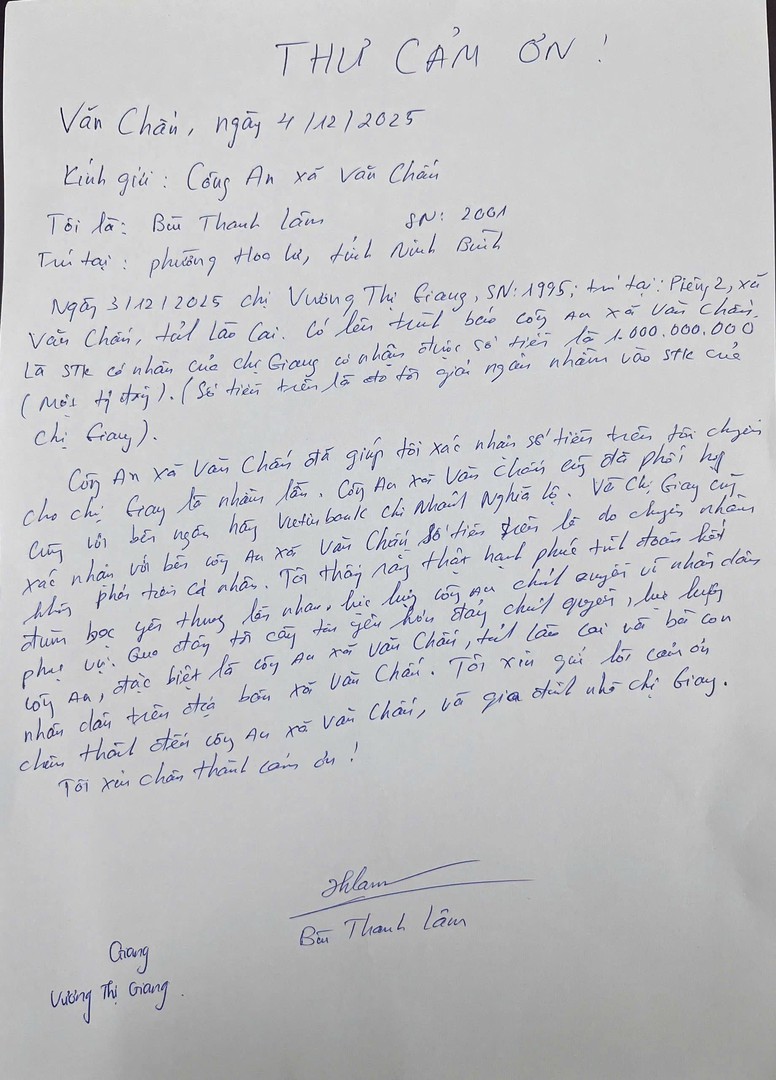 THƯ CẢM ƠN !
Văn Chấn, ngày 4/12/2025
Kính gửi : Công An xã Văn Chấn
Tôi là: Bùi Thanh Lâm SN: 2001
Trú tại : phường Hoa Lư, tỉnh Ninh Bình
Ngày 3/12/2025 chị Vương Thị Giang, SN: 1995; trú tại: Piềng 2, xã
Văn Chấn, tỉnh Lào Cai. Có lên trình báo công An xã Văn Chấn.
Là STK cá nhân của chị Giang có nhận được số tiền là 1.000.000.000
(Một tỷ đồng). (Số tiền trên là do tôi giải ngân nhầm vào STK của
chị Giang).
Công An xã Văn Chấn đã giúp tôi xác nhận số tiền trên tôi chuyển
cho chị Giang là nhầm lẫn. Công An xã Văn Chấn cũng đã phối hợp
cùng với bên ngân hàng Vietinbank chi Nhánh Nghĩa Lộ. Và Chị Giang cũng
xác nhận với bên công An xã Văn Chấn số tiền trên là do chuyển nhầm
không phải tiền cá nhân. Tôi thấy rằng thật hạnh phúc tình đoàn kết
đùm bọc yêu thương lẫn nhau. lực lượng công An chính quyền vì nhân dân
phục vụ. Qua đây tôi càng tin yêu hơn đảng chính quyền, lực lượng
công An, đặc biệt là công An xã Văn Chấn, tỉnh Lào Cai và bà con
nhân dân trên địa bàn xã Văn Chấn. Tôi xin gửi lời cảm ơn
chân thành đến công An xã Văn Chấn, và gia đình nhà chị Giang.
Tôi xin chân thành cảm ơn !
thlam
Bùi Thanh Lâm
Giang
Vương Thị Giang.